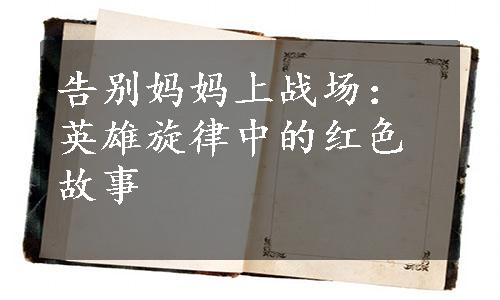 告别妈妈上战场：
英雄旋律中的红色
故事